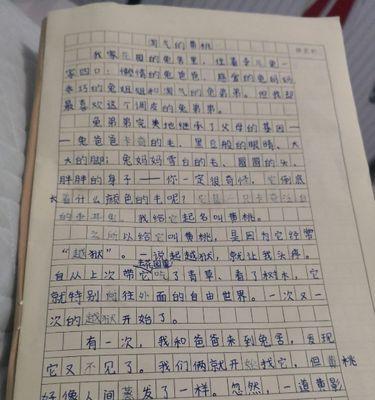 淘气的黄桃
我家花园的兔舍里，住着幸福兔一
家四口：懒惰的兔爸爸，慈爱的兔妈妈
乖巧的兔姐姐和淘气的兔弟弟。但我却
最喜欢这个调皮的兔弟弟。
兔弟弟完美地继承了父母的基因—
—兔爸爸卡奇的毛、黑豆般的眼睛、大
大的脚；兔妈妈雪白的毛、圆圆的头、
胖胖的身子——你一定很奇怪，它倒底
长着什么颜色的毛呢？它是一只卡奇
我给它起名叫黄桃。
之所以给它叫黄桃，是因为它经常
“越狱”。一说起越狱，就让我头疼。
自从上次带它去花园里吃了青草、看了树木，它
就特别向往外面的自由世界。一次又一
次的越狱开始了。
有一次，我和爸爸来到兔舍，发现
它又不见了。我们俩就开始找它，但黄桃
好像人间蒸发了一样。忽然，一道黄影